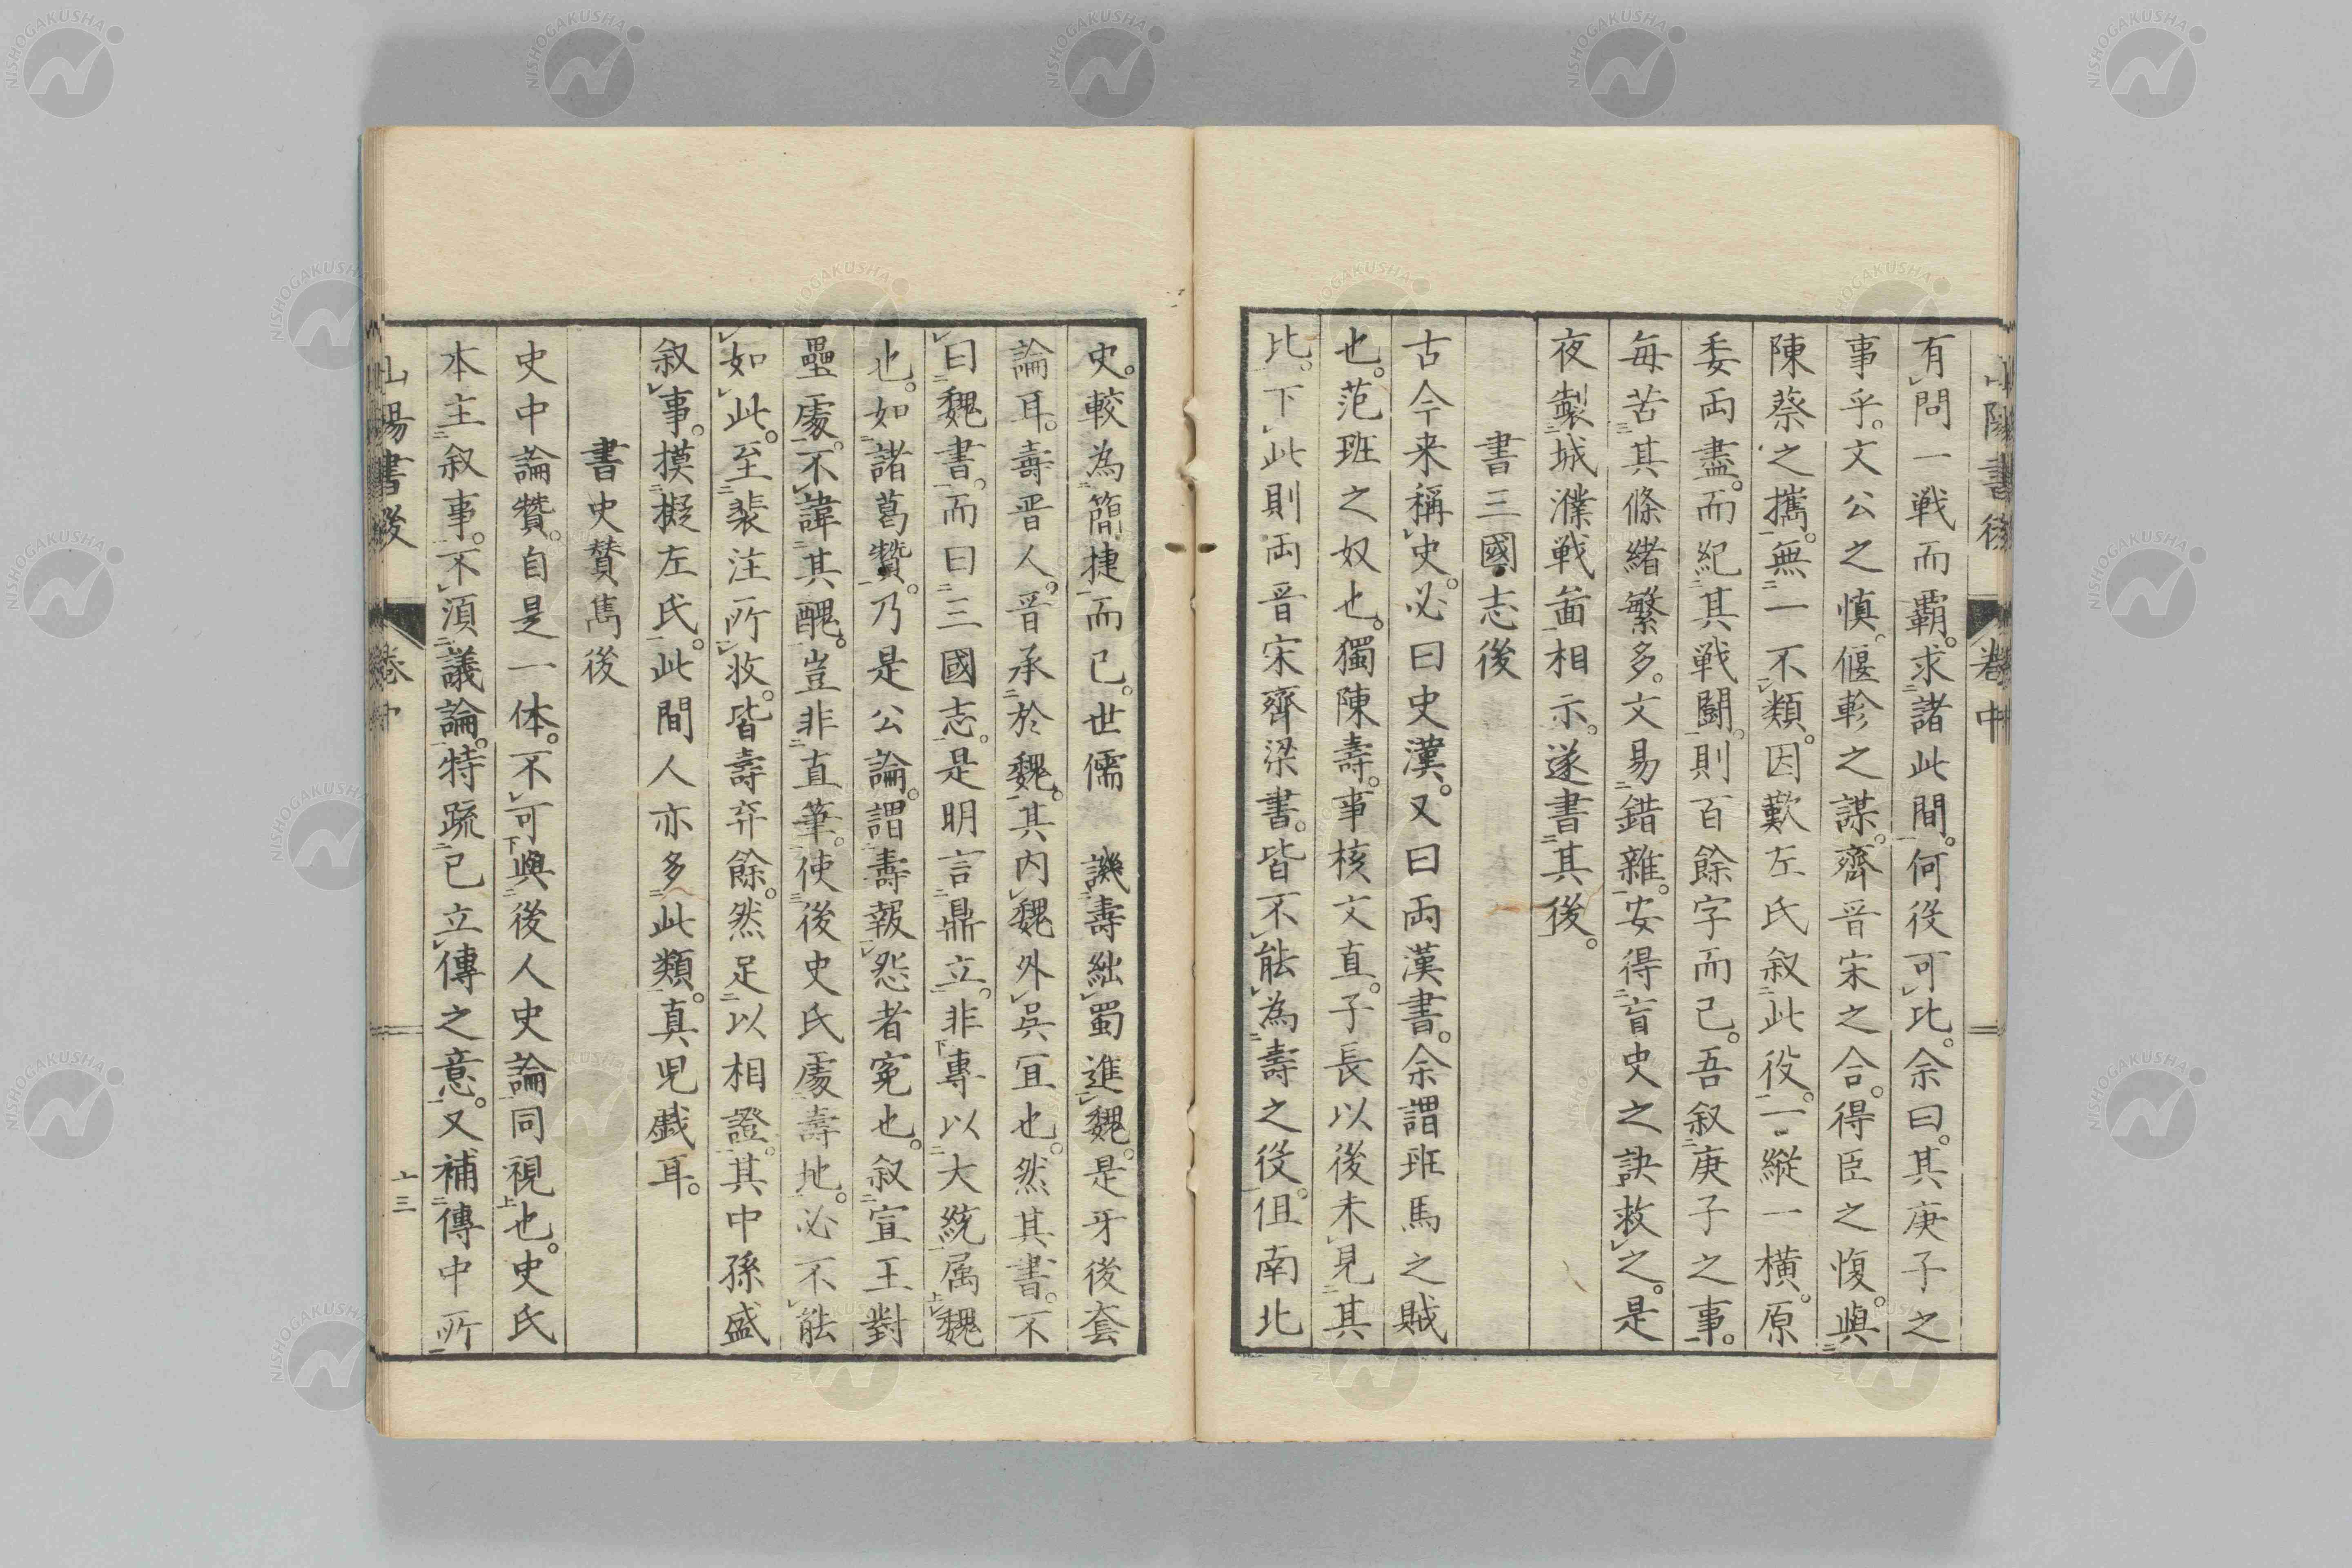 山陽書後
卷中
有問一戦而覇。求諸此間。何役可比。余曰。其庚子之
事乎。文公之慎。偃軫之謀。齊晋宋之合。得臣之愎。與
陳蔡之攜。無一不類。因歎左氏叙此役。一縱一橫。原
委両盡。而紀其戦闘。則百餘字而已。吾叙庚子之事。
毎苦其條緒繁多。文易錯雜。安得盲史之訣救之。是
夜製城濮戦啚相示。遂書其後。
書三國志後
古今来稱史。必曰史漢。又曰両漢書。余謂班馬之賊
也。范班之奴也。獨陳壽。事核文直。子長以後未見其
比。下此則両晋宋齊梁書。皆不能為壽之役。但南北
史。較為簡捷而已。世儒 譏壽絀蜀進魏。是牙後套
論耳。壽晋人。晋承於魏。其内魏外吳冝也。然其書。不
曰魏書。而曰三國志。是明言鼎立。非專以大統属魏
也。如諸葛贊。乃是公論。謂壽報怨者寃也。叙宣王對
壘處。不諱其醜。豈非直筆。使後史氏處壽地。必不能
如此。至裴注所收。皆壽弃餘。然足以相證。其中孫盛
叙事。摸擬左氏。此間人亦多此類。真児戯耳。
書史賛雋後
史中論贊。自是一体。不可與後人史論同視也。史氏
本主叙事。不須議論。特疏已立傳之意。又補傳中所
山陽書後
卷中
十三
NISHOGAKUSHA